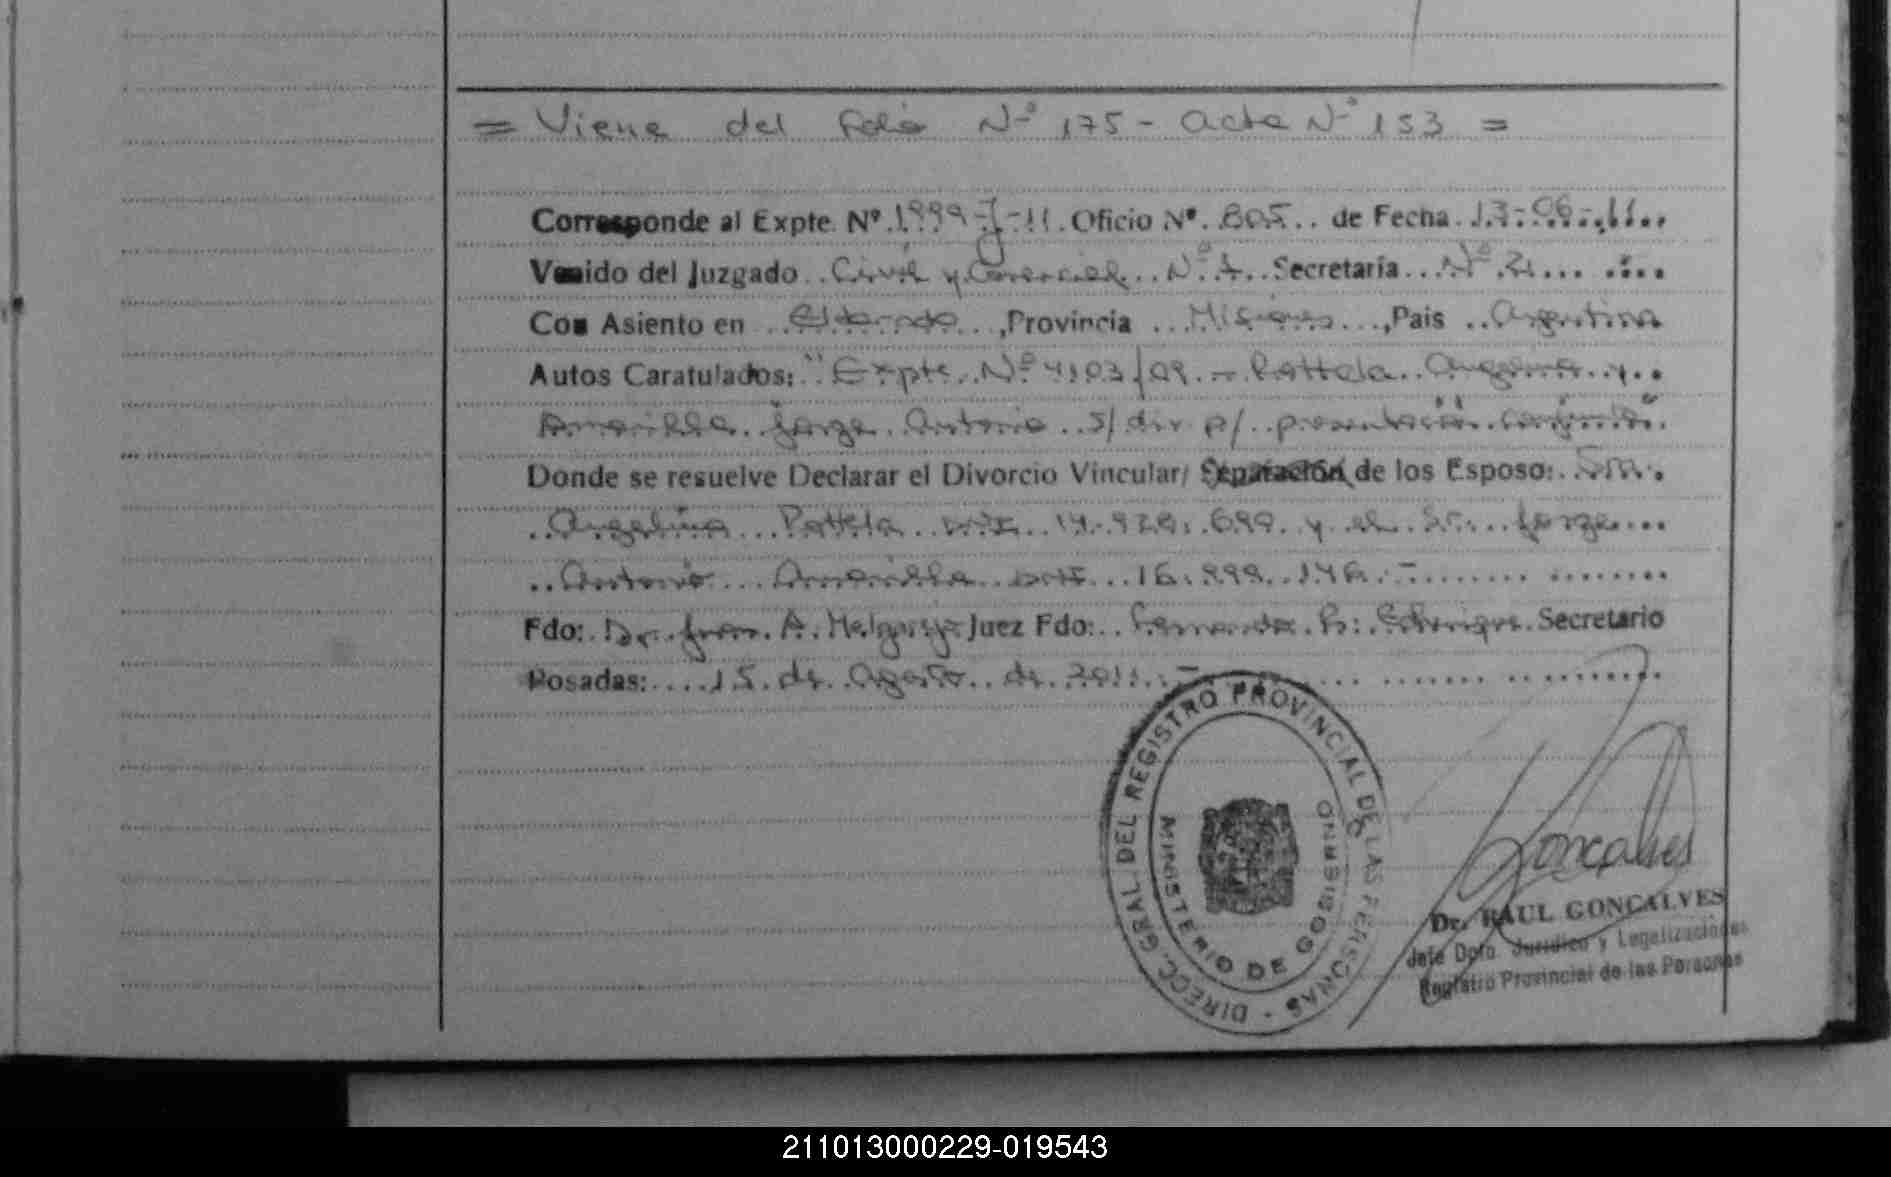 = Viene del Folio Nº 175 - acta Nº 153 =
Corresponde al Expte. Nº 1999-J-11. Oficio Nº. 805.. de Fecha. 13-06-11...
Venido del Juzgado..Civil y Comercial..Nº 1..Secretaria...Nº 2.... ....
Con Asiento en ...Eldorado...,Provincia ...Misiones...,Pais ..Argentina
Autos Caratulados: "Expte. Nº 4103/09.- Pottela..Angelina..y..
Amarilla. Jorge..Antonio..S/ div. p/..presentación conjunta".
Donde se resuelve Declarar el Divorcio Vincular/ Separación de los Esposo:..Sra..
..Angelina...Pottela..DNI..14.920.699 y el Sr...Jorge...
..Antonio...Amarilla..DNI...16.999.146.-........ ........
Fdo:.Dr. Juan. A. Melgarejo Juez Fdo:..Fernanda. Secretario
Posadas:....15.de.Agosto..de.2011..-
DIRECC. GRAL. DEL REGISTRO PROVINCIAL DE LAS PERSONAS -
MINISTERIO DE GOBIERNO
Goncalves
Dr. RAUL GONCALVES
Jefe Dpto. Jurídico y Legalizaciones
Registro Provincial de las Personas
211013000229-019543